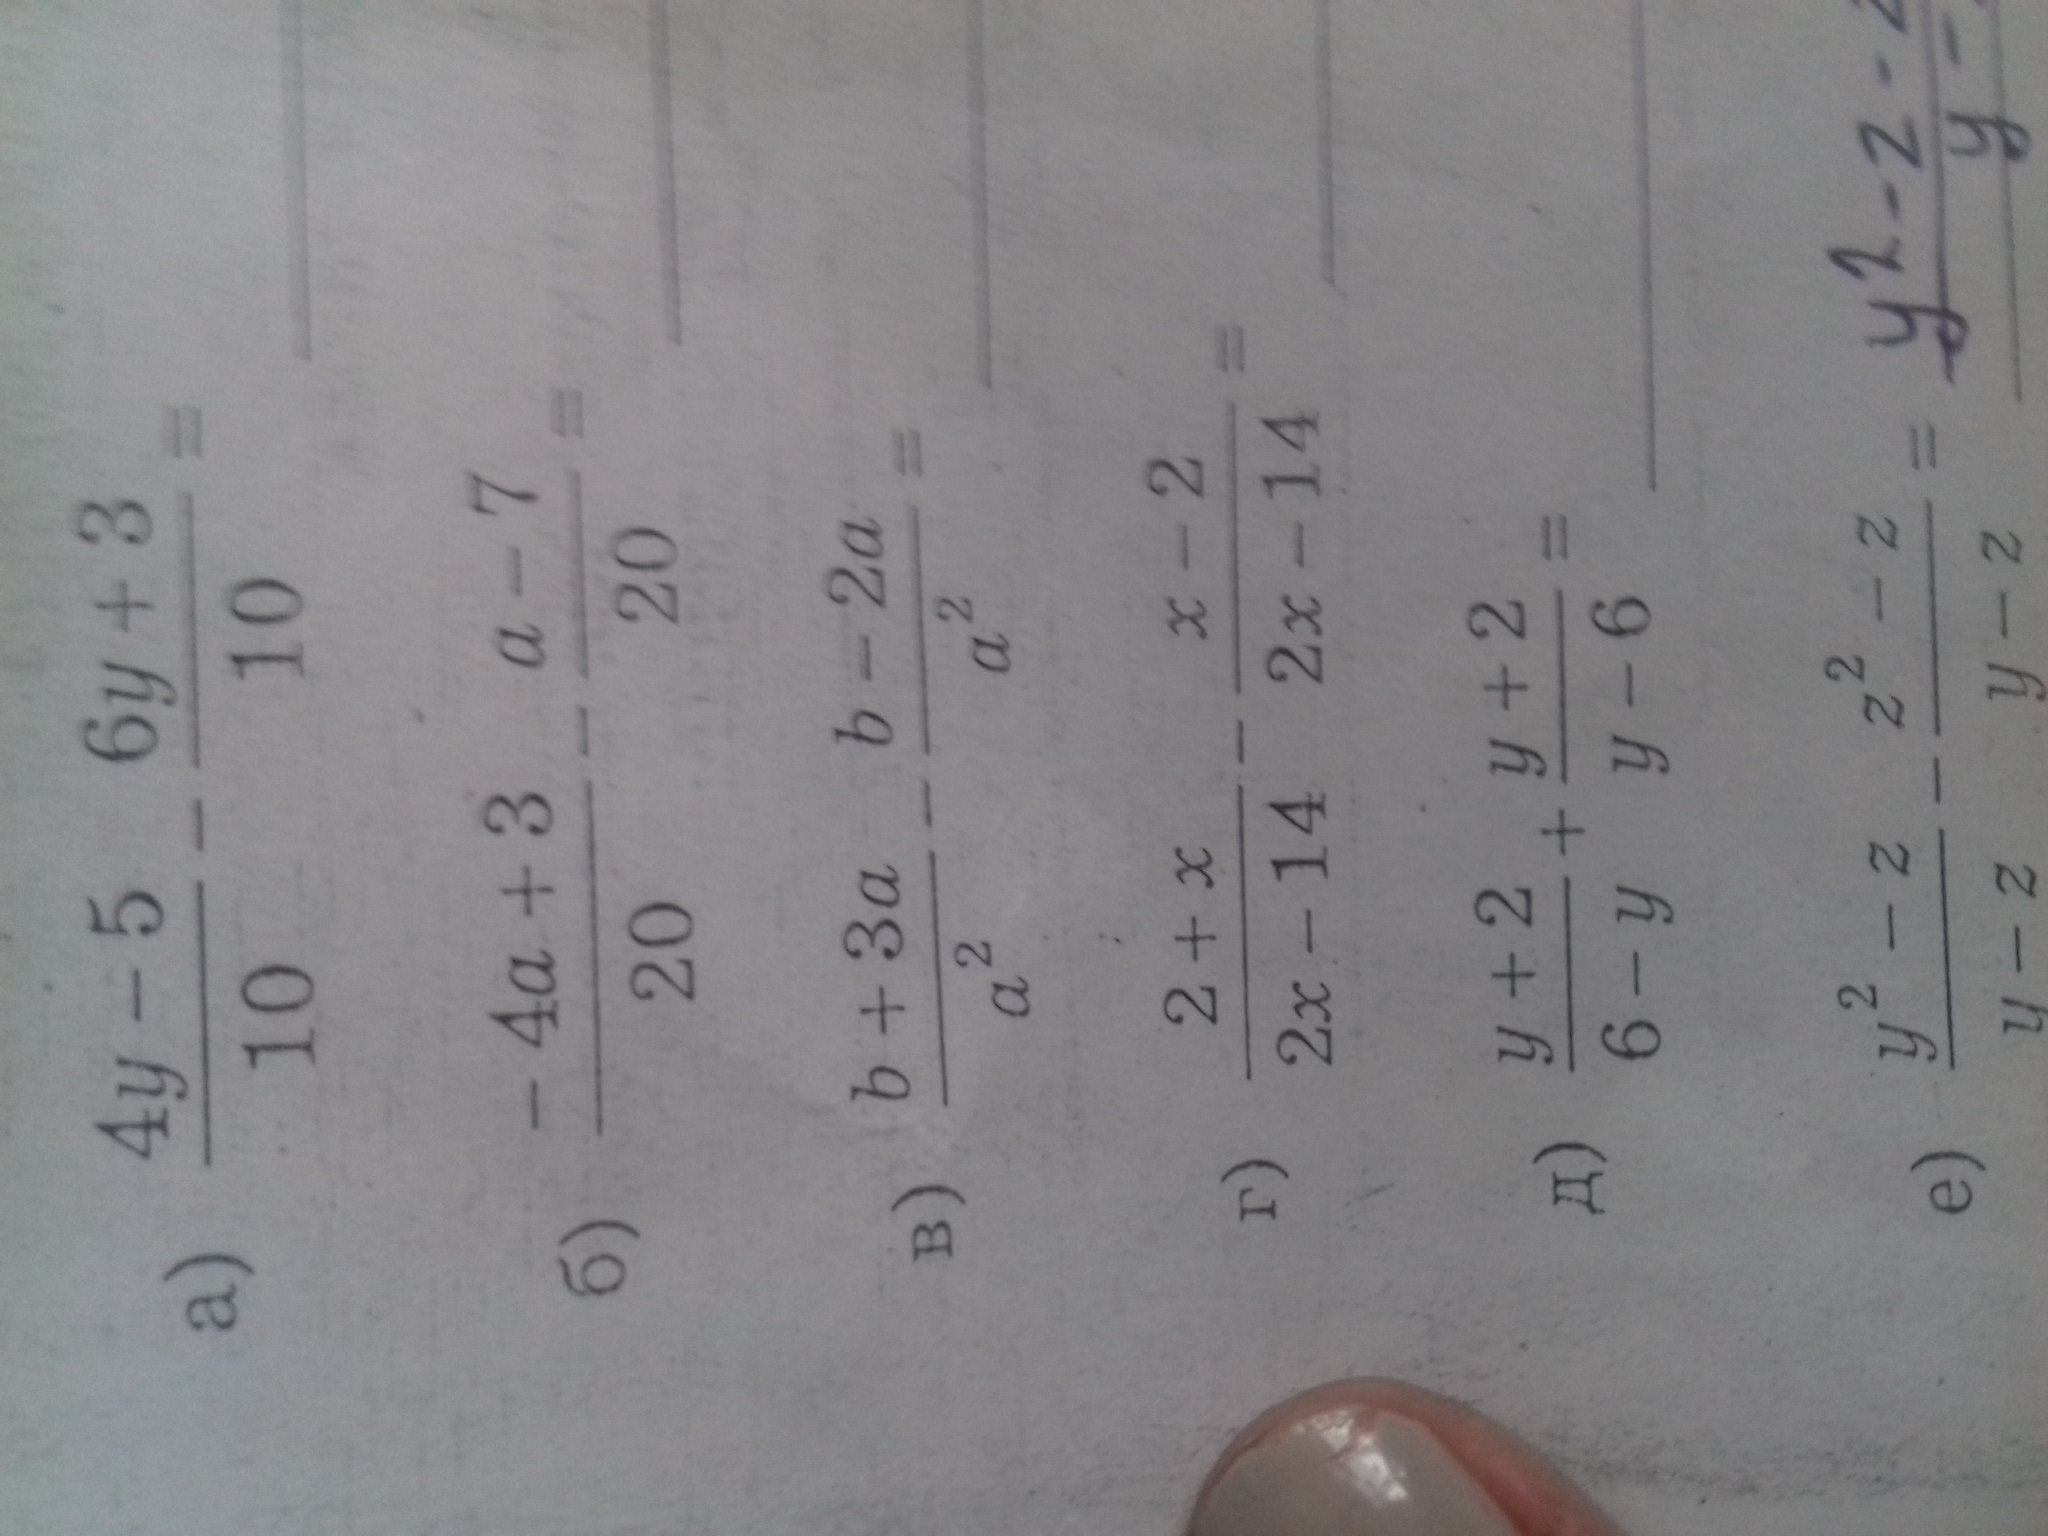 а) (4y − 5)/10 − (6y + 3)/10 =
б) (−4a + 3)/20 − (a − 7)/20 =
в) (b + 3a)/a² − (b − 2a)/a² =
г) (2 + x)/(2x − 14) − (x − 2)/(2x − 14) =
д) (y + 2)/(6 − y) + (y + 2)/(y − 6) =
е) (y² − z)/(y − z) − (z² − z)/(y − z) = y² - z - z